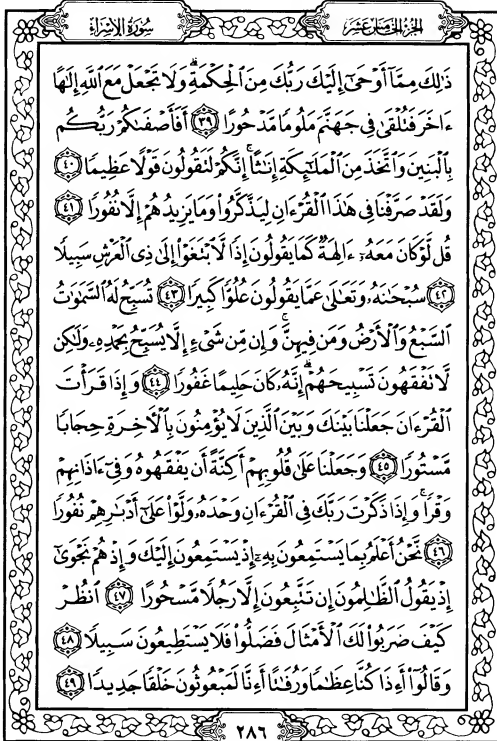 الجزء الخامس عشر
سورة الإسراء
ذَٰلِكَ مِمَّآ أَوۡحَىٰٓ إِلَيۡكَ رَبُّكَ مِنَ ٱلۡحِكۡمَةِۗ وَلَا تَجۡعَلۡ مَعَ ٱللَّهِ إِلَٰهًا
ءَاخَرَ فَتُلۡقَىٰ فِي جَهَنَّمَ مَلُومٗا مَّدۡحُورًا ٣٩ أَفَأَصۡفَىٰكُمۡ رَبُّكُم
بِٱلۡبَنِينَ وَٱتَّخَذَ مِنَ ٱلۡمَلَٰٓئِكَةِ إِنَٰثًاۚ إِنَّكُمۡ لَتَقُولُونَ قَوۡلًا عَظِيمٗا ٤٠
وَلَقَدۡ صَرَّفۡنَا فِي هَٰذَا ٱلۡقُرۡءَانِ لِيَذَّكَّرُواْ وَمَا يَزِيدُهُمۡ إِلَّا نُفُورٗا ٤١
قُل لَّوۡ كَانَ مَعَهُۥٓ ءَالِهَةٞ كَمَا يَقُولُونَ إِذٗا لَّٱبۡتَغَوۡاْ إِلَىٰ ذِي ٱلۡعَرۡشِ سَبِيلٗا
٤٢ سُبۡحَٰنَهُۥ وَتَعَٰلَىٰ عَمَّا يَقُولُونَ عُلُوّٗا كَبِيرٗا ٤٣ تُسَبِّحُ لَهُ ٱلسَّمَٰوَٰتُ
ٱلسَّبۡعُ وَٱلۡأَرۡضُ وَمَن فِيهِنَّۚ وَإِن مِّن شَيۡءٍ إِلَّا يُسَبِّحُ بِحَمۡدِهِۦ وَلَٰكِن
لَّا تَفۡقَهُونَ تَسۡبِيحَهُمۡۗ إِنَّهُۥ كَانَ حَلِيمًا غَفُورٗا ٤٤ وَإِذَا قَرَأۡتَ
ٱلۡقُرۡءَانَ جَعَلۡنَا بَيۡنَكَ وَبَيۡنَ ٱلَّذِينَ لَا يُؤۡمِنُونَ بِٱلۡأٓخِرَةِ حِجَابٗا
مَّسۡتُورٗا ٤٥ وَجَعَلۡنَا عَلَىٰ قُلُوبِهِمۡ أَكِنَّةً أَن يَفۡقَهُوهُ وَفِيٓ ءَاذَانِهِمۡ
وَقۡرٗاۚ وَإِذَا ذَكَرۡتَ رَبَّكَ فِي ٱلۡقُرۡءَانِ وَحۡدَهُۥ وَلَّوۡاْ عَلَىٰٓ أَدۡبَٰرِهِمۡ نُفُورٗا
٤٦ نَّحۡنُ أَعۡلَمُ بِمَا يَسۡتَمِعُونَ بِهِۦٓ إِذۡ يَسۡتَمِعُونَ إِلَيۡكَ وَإِذۡ هُمۡ نَجۡوَىٰٓ
إِذۡ يَقُولُ ٱلظَّٰلِمُونَ إِن تَتَّبِعُونَ إِلَّا رَجُلٗا مَّسۡحُورًا ٤٧ ٱنظُرۡ
كَيۡفَ ضَرَبُواْ لَكَ ٱلۡأَمۡثَالَ فَضَلُّواْ فَلَا يَسۡتَطِيعُونَ سَبِيلٗا ٤٨
وَقَالُوٓاْ أَءِذَا كُنَّا عِظَٰمٗا وَرُفَٰتًا أَءِنَّا لَمَبۡعُوثُونَ خَلۡقٗا جَدِيدٗا ٤٩
٢٨٦